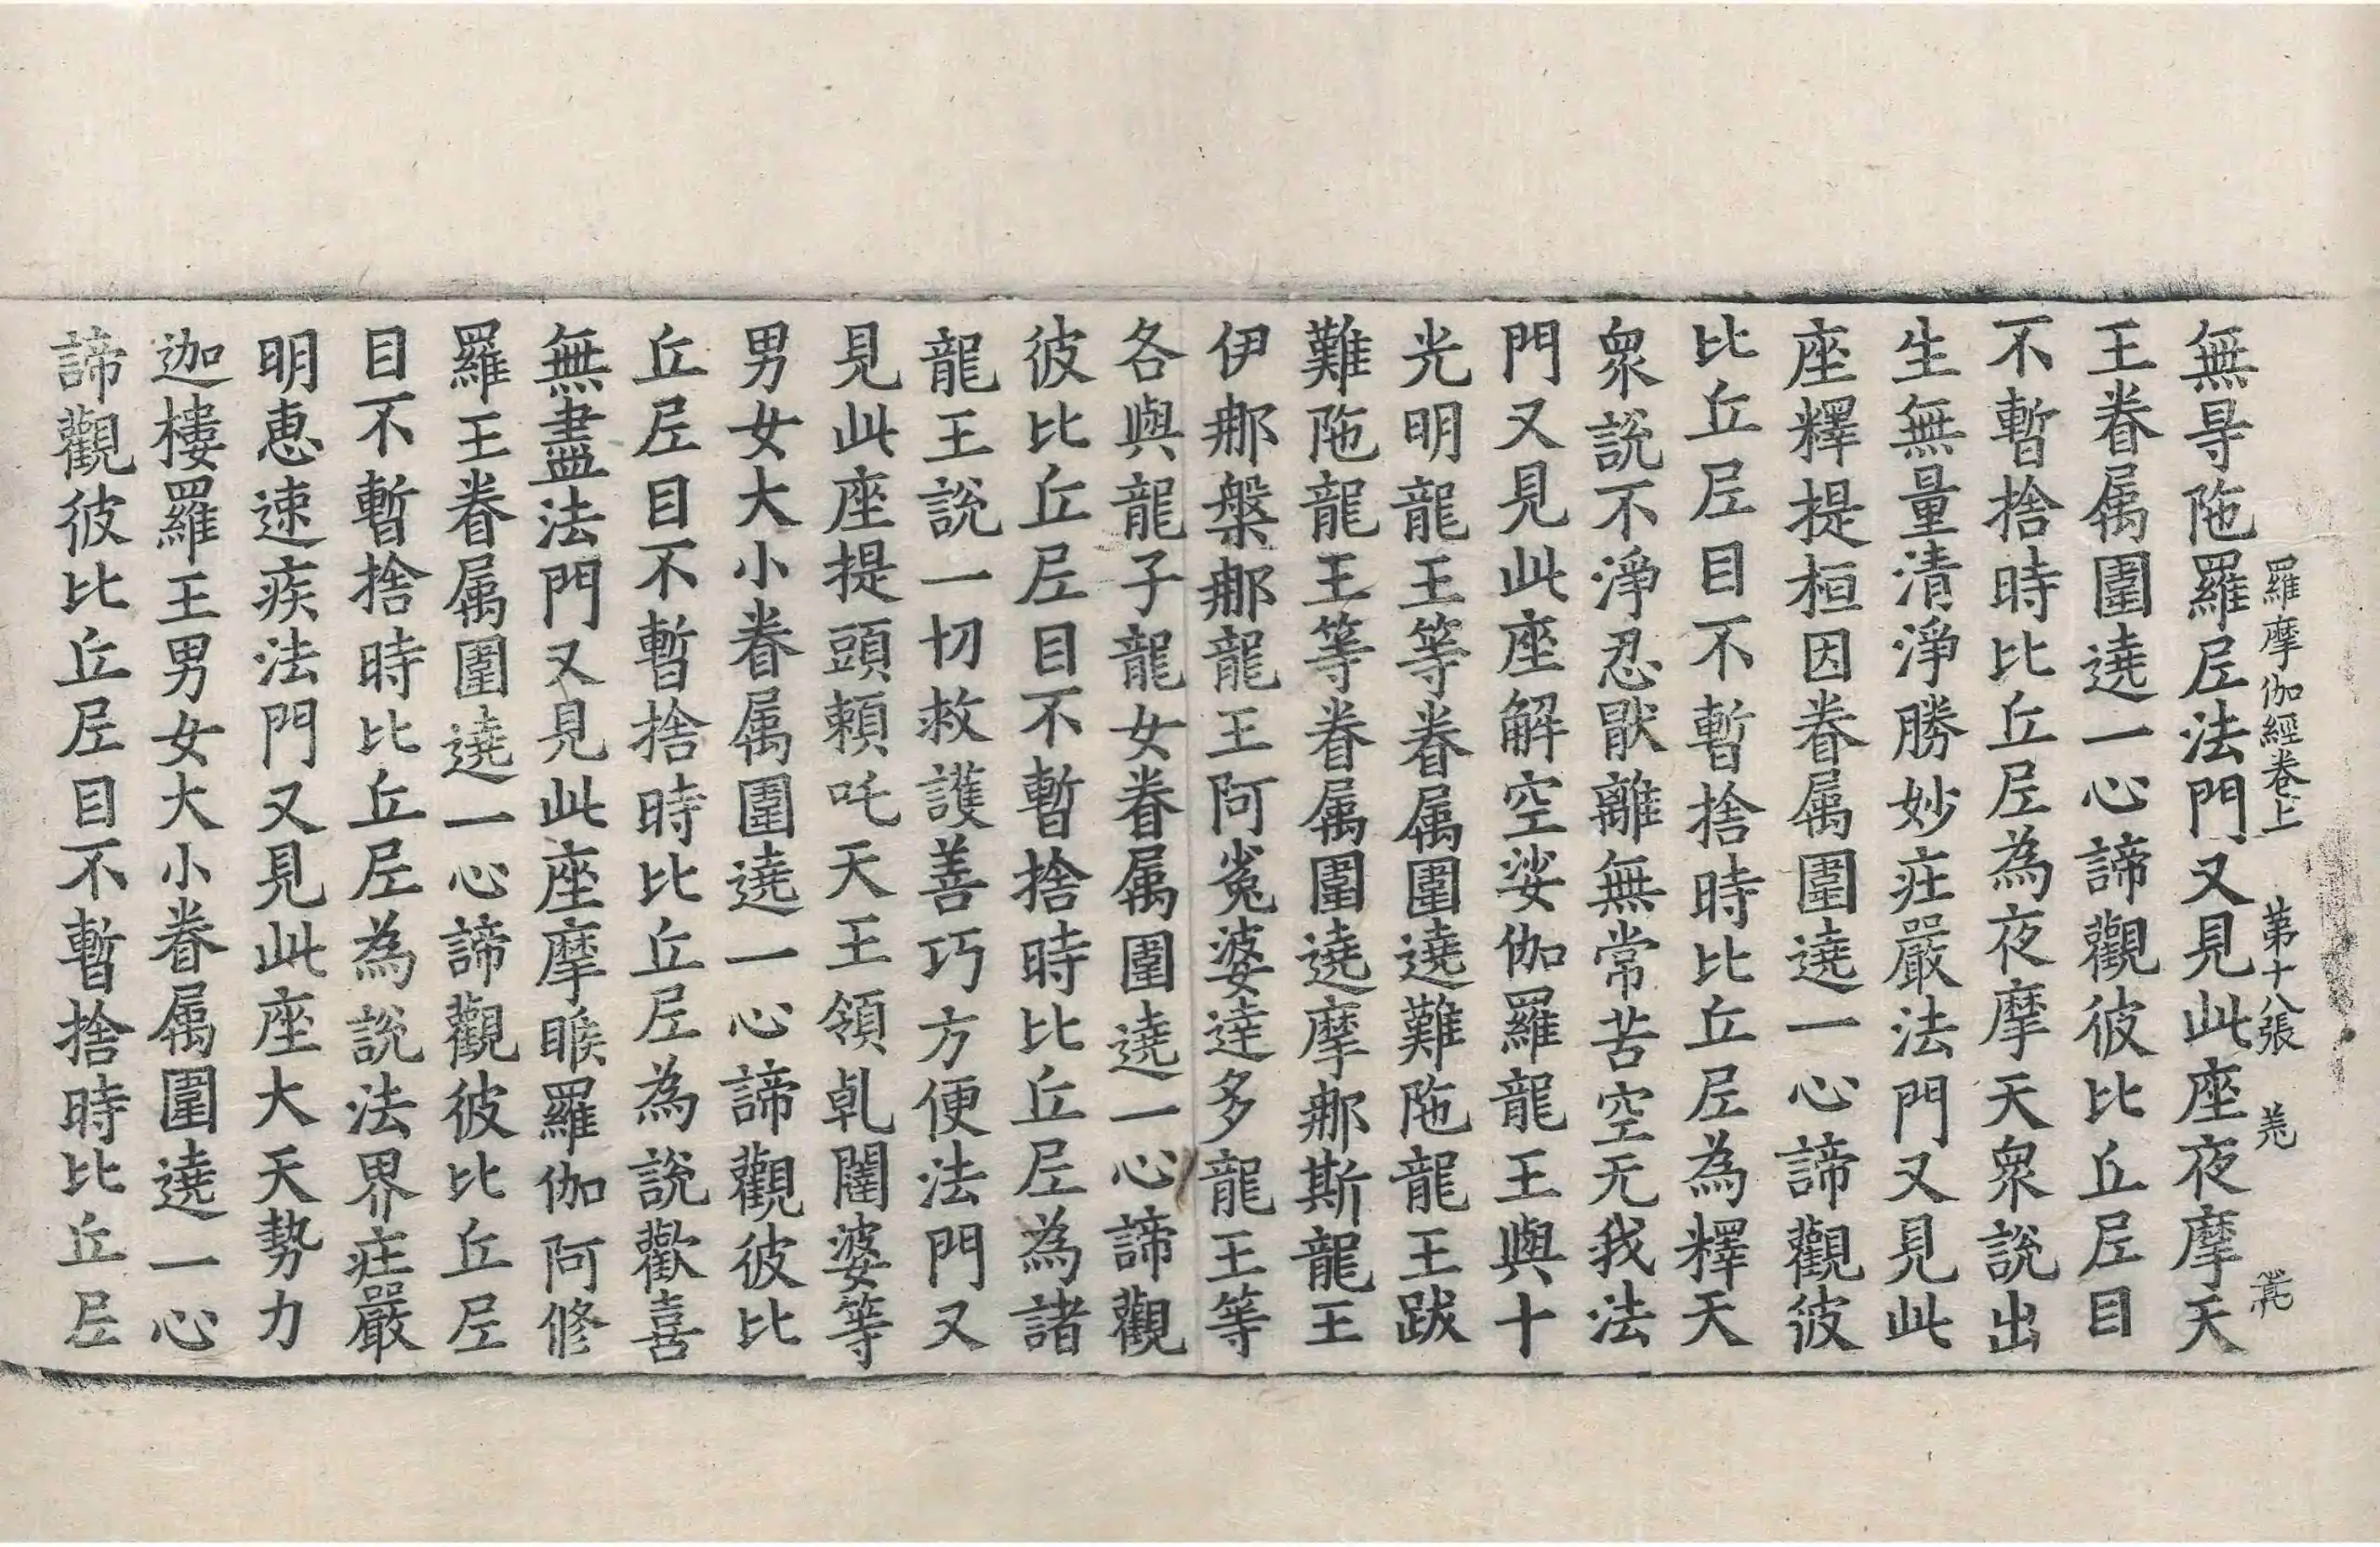 羅摩伽經卷上 第十八張
無㝵陁羅𡰱法門又見此座夜摩天
王眷属圍遶一心諦觀彼比丘𡰱目
不暫捨時比丘𡰱為夜摩天衆說出
生無量清淨勝妙疰嚴法門又見此
座釋提桓因眷属圍遶一心諦觀彼
比丘𡰱目不暫捨時比丘𡰱為釋天
衆說不淨忍猒離無常苦空无我法
門又見此座解空娑伽羅龍王與十
光明龍王等眷属圍遶難陁龍王跋
難陁龍王等眷属圍遶摩那斯龍王
伊那槃那龍王阿㝹婆達多龍王等
各與龍子龍女眷属圍遶一心諦觀
彼比丘𡰱目不暫捨時比丘𡰱為諸
龍王說一切救護善巧方便法門又
見此座提頭賴吒天王領乹闥婆等
男女大小眷属圍遶一心諦觀彼比
丘𡰱目不暫捨時比丘𡰱為說歡喜
無盡法門又見此座摩睺羅伽阿修
羅王眷属圍遶一心諦觀彼比丘𡰱
目不暫捨時比丘𡰱為說法界疰嚴
明惠速疾法門又見此座大天勢力
迦樓羅王男女大小眷属圍遶一心
諦觀彼比丘𡰱目不暫捨時比丘𡰱